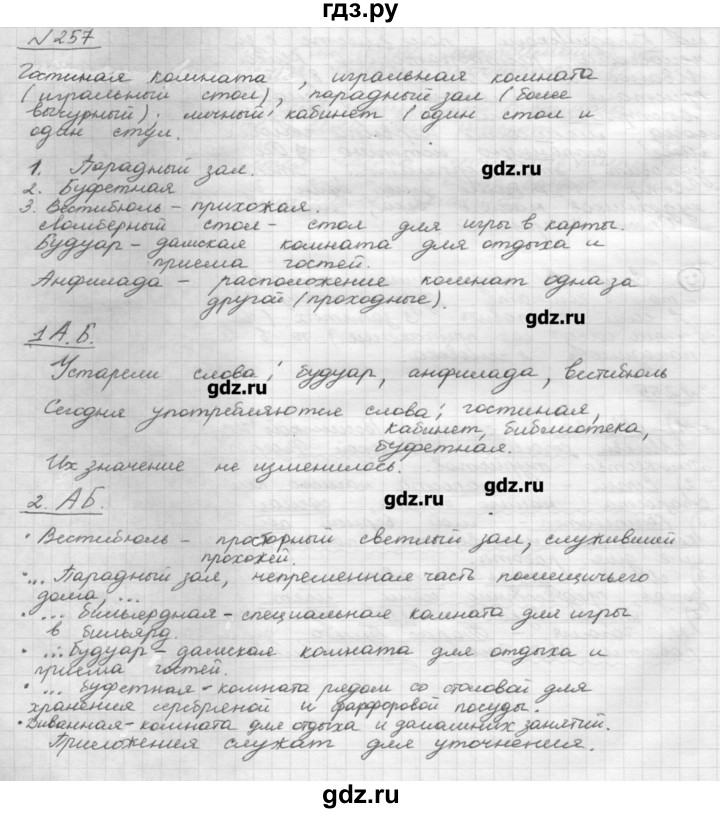 гдз.ру
№257
Гостиная комната, игральная комната
(игральный стол), парадный зал (более
вычурный); личный кабинет (один стол и
один стул.
1. Парадный зал.
gdz.ru
2. Буфетная
3. Вестибюль – прихожая.
Ломберный стол – стол для игры в карты.
Будуар – дамская комната для отдыха и
приема гостей.
Анфилада – расположение комнат одна за
другой (проходные).
gdz.ru
1 А.Б.
Устарели слова: будуар, анфилада, вестибюль
gdz.ru
Сегодня употребляются слова: гостиная,
кабинет, библиотека,
буфетная.
Их значение не изменилось.
gdz.ru
2. АБ.
gdz.ru
• Вестибюль – просторный светлый зал, служивший
прохожей.
• ... Парадный зал, непременная часть помещичьего
дома, ...
• ... бильердная – специальная комната для игры
в бильярд.
• ... будуар – дамская комната для отдыха и
приема гостей.
• ... буфетная – комната рядом со столовой для
хранения серебряной и фарфоровой посуды.
• Диванная – комната для отдыха и домашних занятий.
Приложения служат для уточнения.
gdz.ru